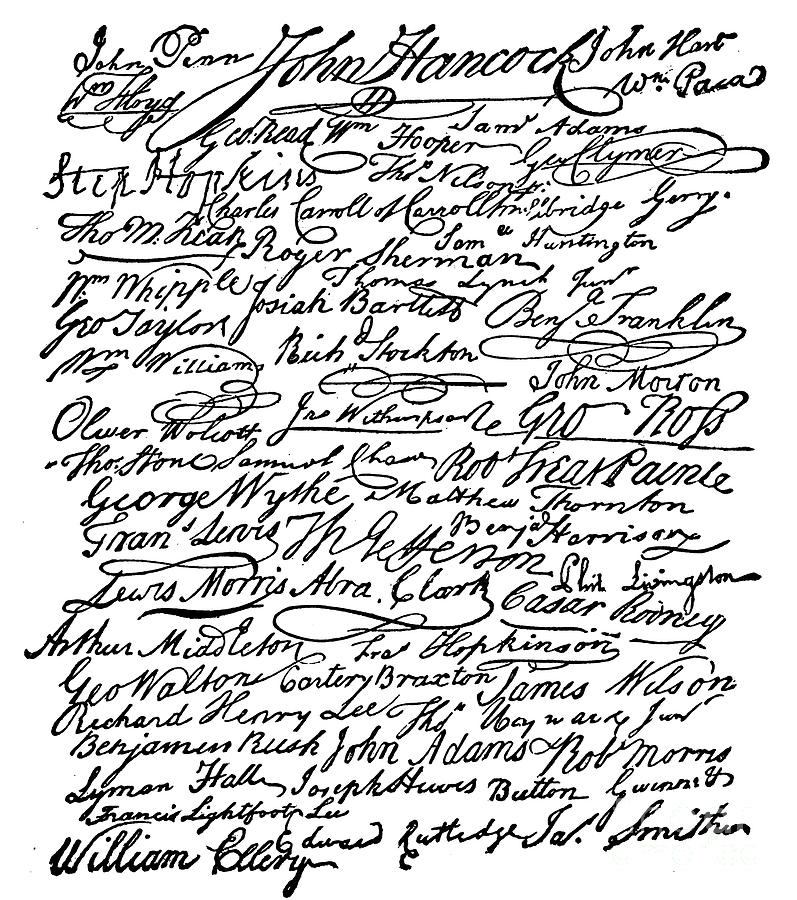 John Penn John Hancock John Hart
Wm Floyd Wm. Paca
Geo. Read Wm Hooper Saml Adams
Geo Clymer
Step Hopkins Thos Nelson jr.
Charles Carroll of Carrollton Elbridge Gerry.
Tho M. Kean Roger Sherman Saml Huntington
Wm Whipple Thomas Lynch Junr
Josiah Bartlett Benj Franklin
Geo Taylor
Wm Williams Richd Stockton
John Morton
Oliver Wolcott Jno Witherspoon Geo Ross
Thos. Stone Samuel Chase Robt Treat Paine
George Wythe Matthew Thornton
Frans Lewis Th Jefferson Benja Harrison
Lewis Morris Abra. Clark Phil. Livingston
Caesar Rodney
Arthur Middleton Fras Hopkinson
Geo Walton Carter Braxton James Wilson
Richard Henry Lee Thos Heyward Junr
Benjamin Rush John Adams Robt Morris
Lyman Hall Joseph Hewes Button Gwinnett
Francis Lightfoot Lee
William Ellery Edward Rutledge Jas. Smith